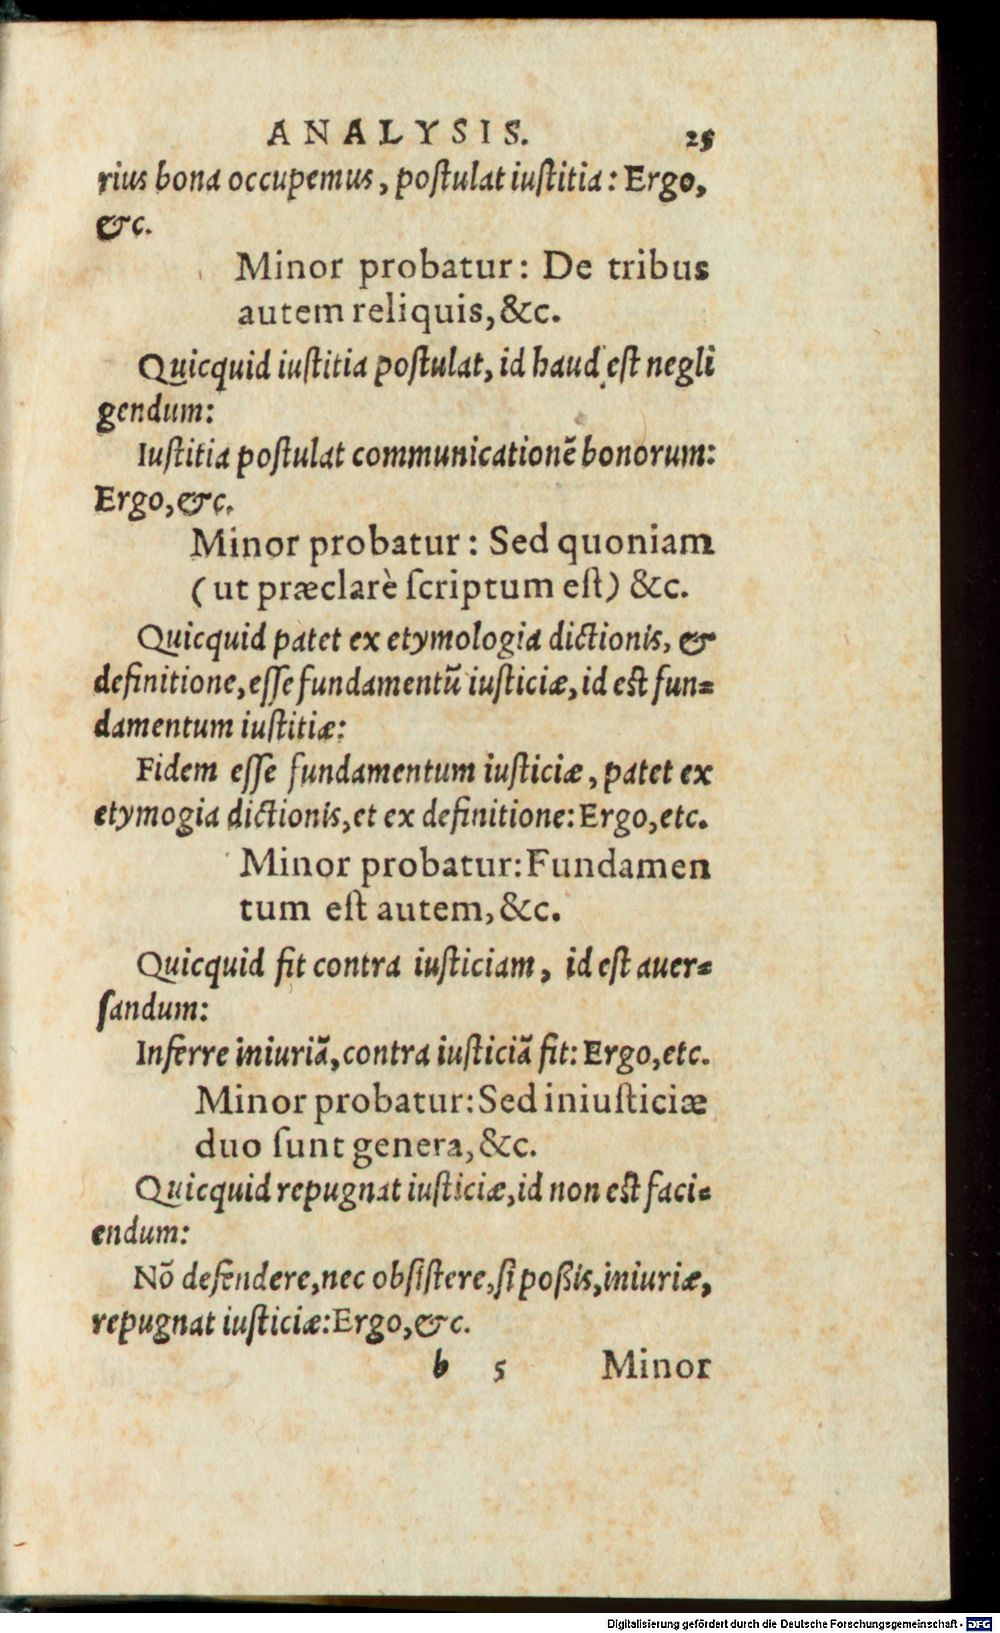 ANALYSIS. 25
rius bona occupemus, poſtulat iuſtitia: Ergo,
&c.
Minor probatur: De tribus
autem reliquis, &c.
Quicquid iuſtitia poſtulat, id haud eſt negli
gendum:
Iuſtitia poſtulat communicationẽ bonorum:
Ergo, &c.
Minor probatur: Sed quoniam
(ut præclarè ſcriptum eſt) &c.
Quicquid patet ex etymologia dictionis, &
definitione, eſſe fundamentũ iuſticiæ, id eſt fun=
damentum iuſtitiæ:
Fidem eſſe fundamentum iuſticiæ, patet ex
etymogia dictionis, et ex definitione: Ergo, etc.
Minor probatur: Fundamen
tum eſt autem, &c.
Quicquid fit contra iuſticiam, id eſt auer=
ſandum:
Inferre iniuriã, contra iuſticiã fit: Ergo, etc.
Minor probatur: Sed iniuſticiæ
duo ſunt genera, &c.
Quicquid repugnat iuſticiæ, id non eſt faci=
endum:
Nõ defendere, nec obſiſtere, ſi poßis, iniuriæ,
repugnat iuſticiæ: Ergo, &c.
b 5 Minor
Digitalisierung gefördert durch die Deutsche Forschungsgemeinschaft - DFG